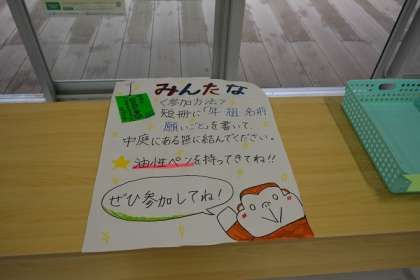 みんたな
〈参加方法〉
短冊に「年 組 名前
願いごと」を書いて、
中庭にある笹に結んでください。
油性ペンを持ってきてね!!
ぜひ参加してね!